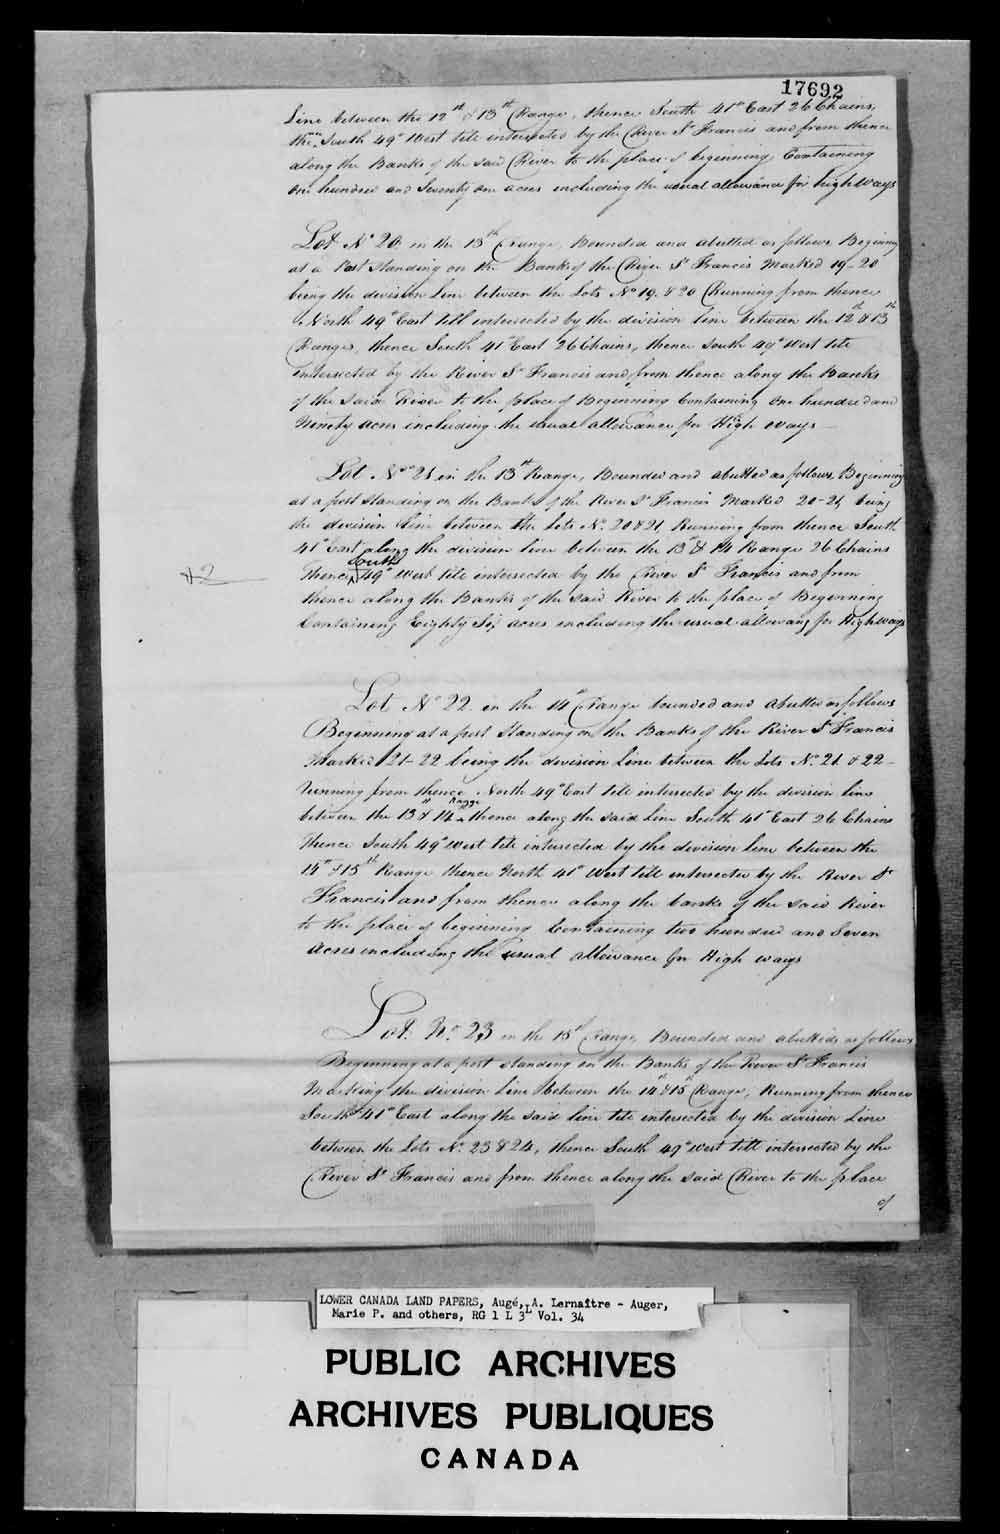 17692
Line between the 12th & 13th Range, thence South 41° East 26 Chains,
thence South 49° West till intersected by the River St Francis and from thence
along the Banks of the said River to the place of beginning Containing
One hundred and Seventy one acres including the usual allowance for high ways
Lot No 20 in the 13th Range, Bounded and abutted as follows, Begining
at a Post Standing on the Banks of the River St Francis Marked 19-20
being the division Line between the Lots No 19. & 20 Running from thence
North 49° East till intersected by the division line between the 12th & 13th
Range, thence South 41° East 26 Chains, thence South 49° West till
intersected by the River St Francis and from thence along the Banks
of the said River to the place of Beginning Containing One hundred and
Ninety acres including the usual allowance for High ways
Lot No 21 in the 13th Range, Bounded and abutted as follows, Beginning
at a post standing on the Banks of the River St Francis Marked 20-21, being
the division line between the Lots No. 20 & 21, Running from thence South
41° East along the division line between the 13th & 14 Range 26 Chains
thence South 49° West till intersected by the River St Francis and from
thence along the Banks of the said River to the place of Beginning
Containing Eighty Six acres including the usual allowang for Highways
Lot No 22 in the 14th Range bounded and abutted as follows
Beginning at a post Standing on the Banks of the River St Francis
Marked 21-22 being the division Line between the Lots No. 21 & 22
running from thence North 49° East till intersected by the division line
between the 13 & 14th Range thence along the said Line South 41° East 26 Chains
thence South 49° West till intersected by the division line between the
14th & 15th Range thence North 41° West till intersected by the River St
Francis and from thence along the banks of the said River
to the place of beginning Containing two hundred and Seven
Acres including the usual allowance for High ways
Lot No. 23 in the 15th Range, Bounded and abutted as follows
Beginning at a post standing on the Banks of the River St Francis
Marking the division Line between the 14th & 15th Range, Running from thence
South 41° East along the said line till intersected by the division Line
between the Lots No. 23 & 24, thence South 49° West till intersected by the
River St Francis and from thence along the said River to the place
of
LOWER CANADA LAND PAPERS, Augé, A. Lernaître - Auger,
Marie P. and others, RG 1 L 3L Vol. 34
PUBLIC ARCHIVES
ARCHIVES PUBLIQUES
CANADA